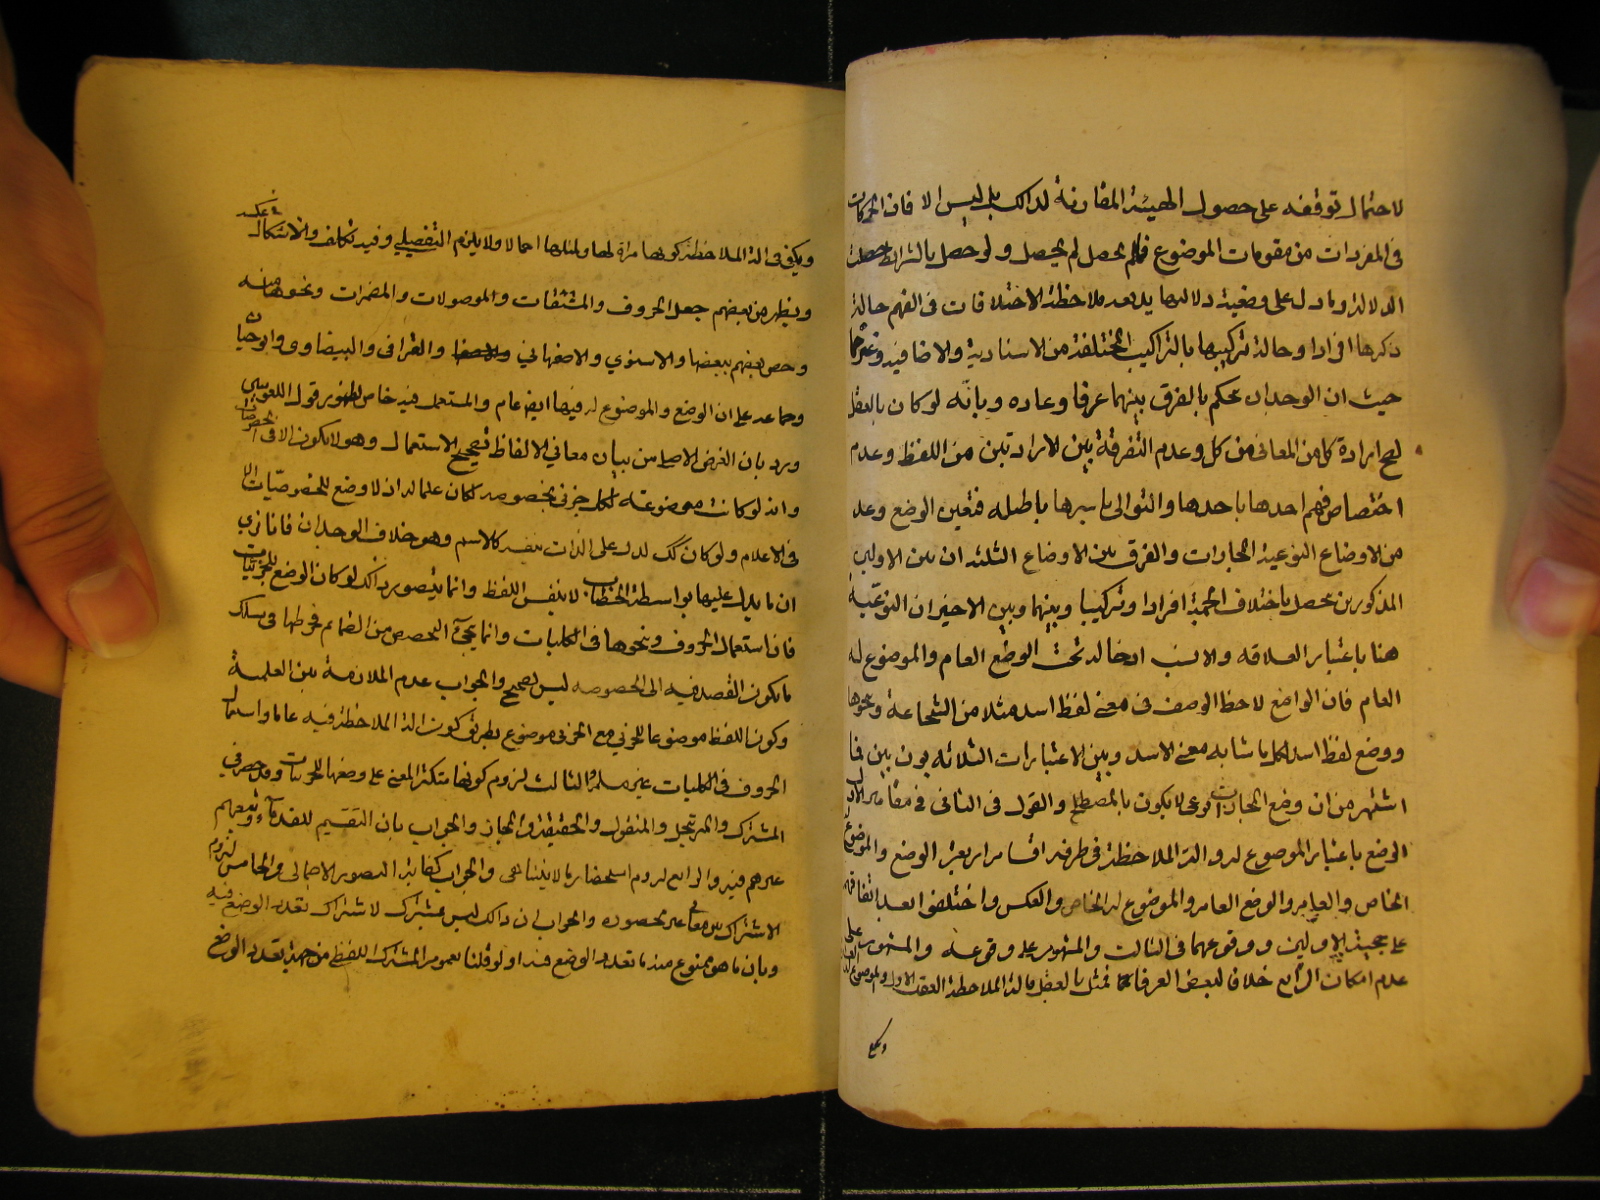 لاحتمال توقفه على حصول الهيئة المقارنة لذلك بل ليس الا فان الحركات
فى المفردات من مقومات الموضوع فلم يحصل لم يحصل ولو حصل بالشرائط حصلت
الدلالة وما دل على وضعية دلالتها يدفعه ملاحظة الاختلافات فى الفهم حالة
ذكرها افرادا وحالة تركيبها بالتراكيب المختلفة من الاسنادية والاضافية وغيرهما
حيث ان الوجدان يحكم بالفرق بينهما عرفا وعاده وبانّه لو كان بالعقل
لصح ارادة كل من المعانى من كل وعدم التفرقة بين الارادتين من اللفظ وعدم
اختصاص فهم احدها باحدها والتوالى باسرها باطله فتعين الوضع وعد
من الاوضاع النوعية المجازات والفرق بين الاوضاع الثلثه ان بين الاولين
المذكورين يحصل باختلاف الجهة افرادا وتركيبا وبينهما وبين الاخير ان النوعّية
هنا باعتبار العلاقه والانسب ادخاله تحت الوضع العام والموضوع له
العام فان الواضع لاحظ الوصف فى معنى لفظ اسد مثلا من الشجاعة ونحوها
ووضع لفظ اسد لكل ما شابه معنى الاسد وبين الاعتبارات الثلاثه بون بين فما
اشتهر من ان وضع المجازات نوعى لا يكون بالمصطلح والقول فى الثانى فى مقامين الاول
الوضع باعتبار الموضوع له والة الملاحظة فى طرفيه اقسام اربعة الوضع والموضوع
الخاص والعام والوضع العام والموضوع له الخاص والعكس واختلفوا بعد اتفاقهم
على صحة الاولين ووقوعهما فى الثالث والمشهور على وقوعه والمشهور على
عدم امكان الرابع خلافا لبعض العرفا تمثل بالعقل فالة الملاحظة العقل الاول والموضوع له
ويكفى
ويكفى فى الة الملاحظة كونها مراة لها ولمثلها اجمالا ولا يلزم التفصيلي وفيه تكلف والاشكال فى عكسه
ويظهر من بعضهم جعل الحروف والمشتقات والموصولات والمضمرات ونحوها منه
وخص بعضهم ببعضها والاسنوي والاصفهاني والقرافى والبيضاوى وابو حيان
وجماعة على ان الوضع والموضوع له فيها ايضا عام والمستعمل فيه خاص لظهور قول اللغويين
ورد بان الغرض الاصلي من بيان معاني الالفاظ تصحيح الاستعمال وهو لا يكون الا فى الخصوصيات
وانه لو كانت موضوعة لكل جزئى بخصوصه لكان علما لان لا وضع للخصوصيّات الا
فى الاعلام ولو كان كك لدل على الذات بنفسه كالاسم وهو خلاف الوجدان فانا نرى
ان ما يدل عليها بواسطة الخطاب لا بنفس اللفظ وانما يتصور ذلك لو كان الوضع للجزئيات
فان استعمال الحروف ونحوها فى الكليات وانما يجئ التخصص من الضمائم فربطها فى سلك
ما يكون القصد فيه الى الخصوصه ليس بصحيح والجواب عدم الملازمة بين العلمية
وكون اللفظ موضوعا للجزئي مع الجزئى موضوع بطريق كون الة الملاحظة فيه عاما واستعمال
الحروف فى الكليات غير مسلم الثالث لزوم كونها متكثر المعنى على وضعها للجزئيات وقد حصر في
المشترك والمرتجل والمنقول والحقيقة والمجاز والجواب بان التقسيم للقدماء وتبعهم
غيرهم فيه والرابع لزوم استحضار ما لا يتناهى والجواب كفاية التصور الاجمالى والخامس لزوم
الاشتراك بين معانى غير محصوره والجواب ان ذلك ليس بمشترك لاشتراك تعدد الوضع فيه
وبان ما هو ممنوع منه ما تعدد الوضع فيه او لو قلنا بعموم المشترك اللفظي من جهة تعدد الوضع